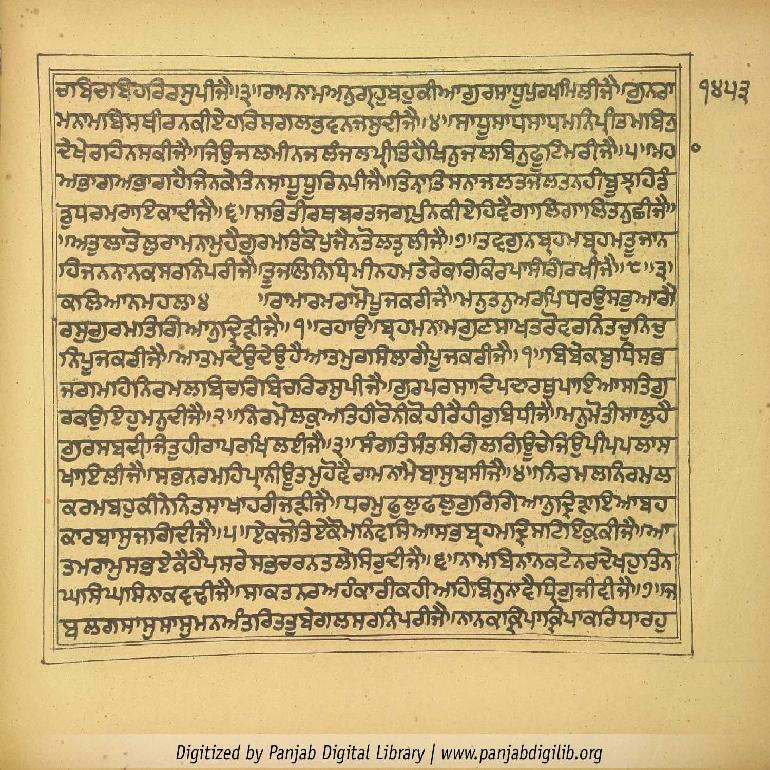 ਚਬਿਚਬਿਹਰਿਰਸੁਪੀਜੈ॥੩॥ਰਾਮਨਾਮਅਨੁਗ੍ਰਹੁਬਹੁਕੀਆਗੁਰਸਾਧੂਪੁਰਖਮਿਲੀਜੈ॥ਗੁਨਰਾ
੧੪੫੩
ਮਨਾਮਬਿਸਥੀਰਨਕੀਏਹਰਿਸਗਲਭਵਨਜਸੁਦੀਜੈ॥੪॥ਸਾਧੂਸਾਧਸਾਧਮਨਿਪ੍ਰੀਤਮਬਿਨੁ
ਦੇਖੇਰਹਿਨਸਕੀਜੈ॥ਜਿਉਜਲਮੀਨਜਲੰਜਲਪ੍ਰੀਤਿਹੈਖਿਨੁਜਲਬਿਨੁਫੂਟਿਮਰੀਜੈ॥੫॥ਮਹ
ਅਭਾਗਅਭਾਗਹੈਜਿਨਕੇਤਿਨਸਾਧੂਧੂਰਿਨਪੀਜੈ॥ਤਿਨਾਤਿਸਨਾਜਲਤਜਲਤਨਹੀਬੂਝਹਿਡੰ
ਡੁਧਰਮਰਾਇਕਾਦੀਜੈ॥੬॥ਸਭਿਤੀਰਥਬਰਤਜਗੵਪੁੰਨਕੀਏਹਿਵੈਗਾਲਿਗਾਲਿਤਨੁਛੀਜੈ॥
॥ਅਤੁਲਾਤੋਲੁਰਾਮਨਾਮੁਹੈਗੁਰਮਤਿਕੋਪੁਜੈਨਤੋਲਤੁਲੀਜੈ॥੭॥ਤਵਗੁਨਬ੍ਰਹਮਬ੍ਰਹਮਤੂਜਾਨ
ਹਿਜਨਨਾਨਕਸਰਨਿਪਰੀਜੈ॥ਤੂਜਲਨਿਧਿਮੀਨਹਮਤੇਰੇਕਰਿਕਿਰਪਾਸੰਗਿਰਖੀਜੈ॥੮॥੩॥
ਕਲਿਆਨਮਹਲਾ੪ ॥ਰਾਮਾਰਮਰਾਮੋਪੂਜਕਰੀਜੈ॥ਮਨੁਤਨੁਅਰਪਿਧਰਉਸਭੁਆਗੈ
ਰਸੁਗੁਰਮਤਿਗਿਆਨੁਦ੍ਰਿੜੀਜੈ॥੧॥ਰਹਾਉ॥ਬ੍ਰਹਮਨਾਮਗੁਣਸਾਖਤਰੋਵਰਨਿਤਚੁਨਿਚੁ
ਨਿਪੂਜਕਰੀਜੈ॥ਆਤਮਦੇਉਦੇਉਹੈਆਤਮੁਰਸਿਲਾਗੈਪੂਜਕਰੀਜੈ॥੧॥ਬਿਬੇਕਬੁਧਿਸਭ
ਜਗਮਹਿਨਿਰਮਲਬਿਚਰਿਬਿਚਰਿਰਸੁਪੀਜੈ॥ਗੁਰਪਰਸਾਦਿਪਦਾਰਥੁਪਾਇਆਸਤਿਗੁ
ਰਕਉਇਹੁਮਨੁਦੀਜੈ॥੨॥ਨਿਰਮੋਲਕੁਅਤਿਹੀਰੋਨੀਕੋਹੀਰੈਹੀਰੁਬਿਧੀਜੈ॥ਮਨੁਮੋਤੀਸਾਲੁਹੈ
ਗੁਰਸਬਦੀਜਿਤੁਹੀਰਾਪਰਖਿਲਈਜੈ॥੩॥ਸੰਗਤਿਸੰਤਸੰਗਿਲਗਿਊਚੇਜਿਉਪੀਪਪਲਾਸ
ਖਾਇਲੀਜੈ॥ਸਭਨਰਮਹਿਪ੍ਰਾਨੀਊਤਮੁਹੋਵੈਰਾਮਨਾਮੈਬਾਸੁਬਸੀਜੈ॥੪॥ਨਿਰਮਲਨਿਰਮਲ
ਕਰਮਬਹੁਕੀਨੇਨਿਤਸਾਖਾਹਰੀਜੜੀਜੈ॥ਧਰਮੁਫੁਲੁਫਲੁਗੁਰਿਗਿਆਨੁਦ੍ਰਿੜਾਇਆਬਹ
ਕਾਰਬਾਸੁਜਗਿਦੀਜੈ॥੫॥ਏਕਜੋਤਿਏਕੋਮਨਿਵਸਿਆਸਭਬ੍ਰਹਮਦ੍ਰਿਸਟਿਇਕੁਕੀਜੈ॥ਆ
ਤਮਰਾਮੁਸਭਏਕੈਹੈਪਸਰੇਸਭਚਰਨਤਲੇਸਿਰੁਦੀਜੈ॥੬॥ਨਾਮਬਿਨਾਨਕਟੇਨਰਦੇਖਹੁਤਿਨ
ਘਸਿਘਸਿਨਾਕਵਢੀਜੈ॥ਸਾਕਤਨਰਅਹੰਕਾਰੀਕਹੀਅਹਿਬਿਨੁਨਾਵੈਧ੍ਰਿਗੁਜੀਵੀਜੈ॥੭॥ਜ
ਬਲਗਸਾਸੁਸਾਸੁਮਨਅੰਤਰਿਤਤੁਬੇਗਲਸਰਨਿਪਰੀਜੈ॥ਨਾਨਕਕ੍ਰਿਪਾਕ੍ਰਿਪਾਕਰਿਧਾਰਹੁ
Digitized by Panjab Digital Library | www.panjabdigilib.org